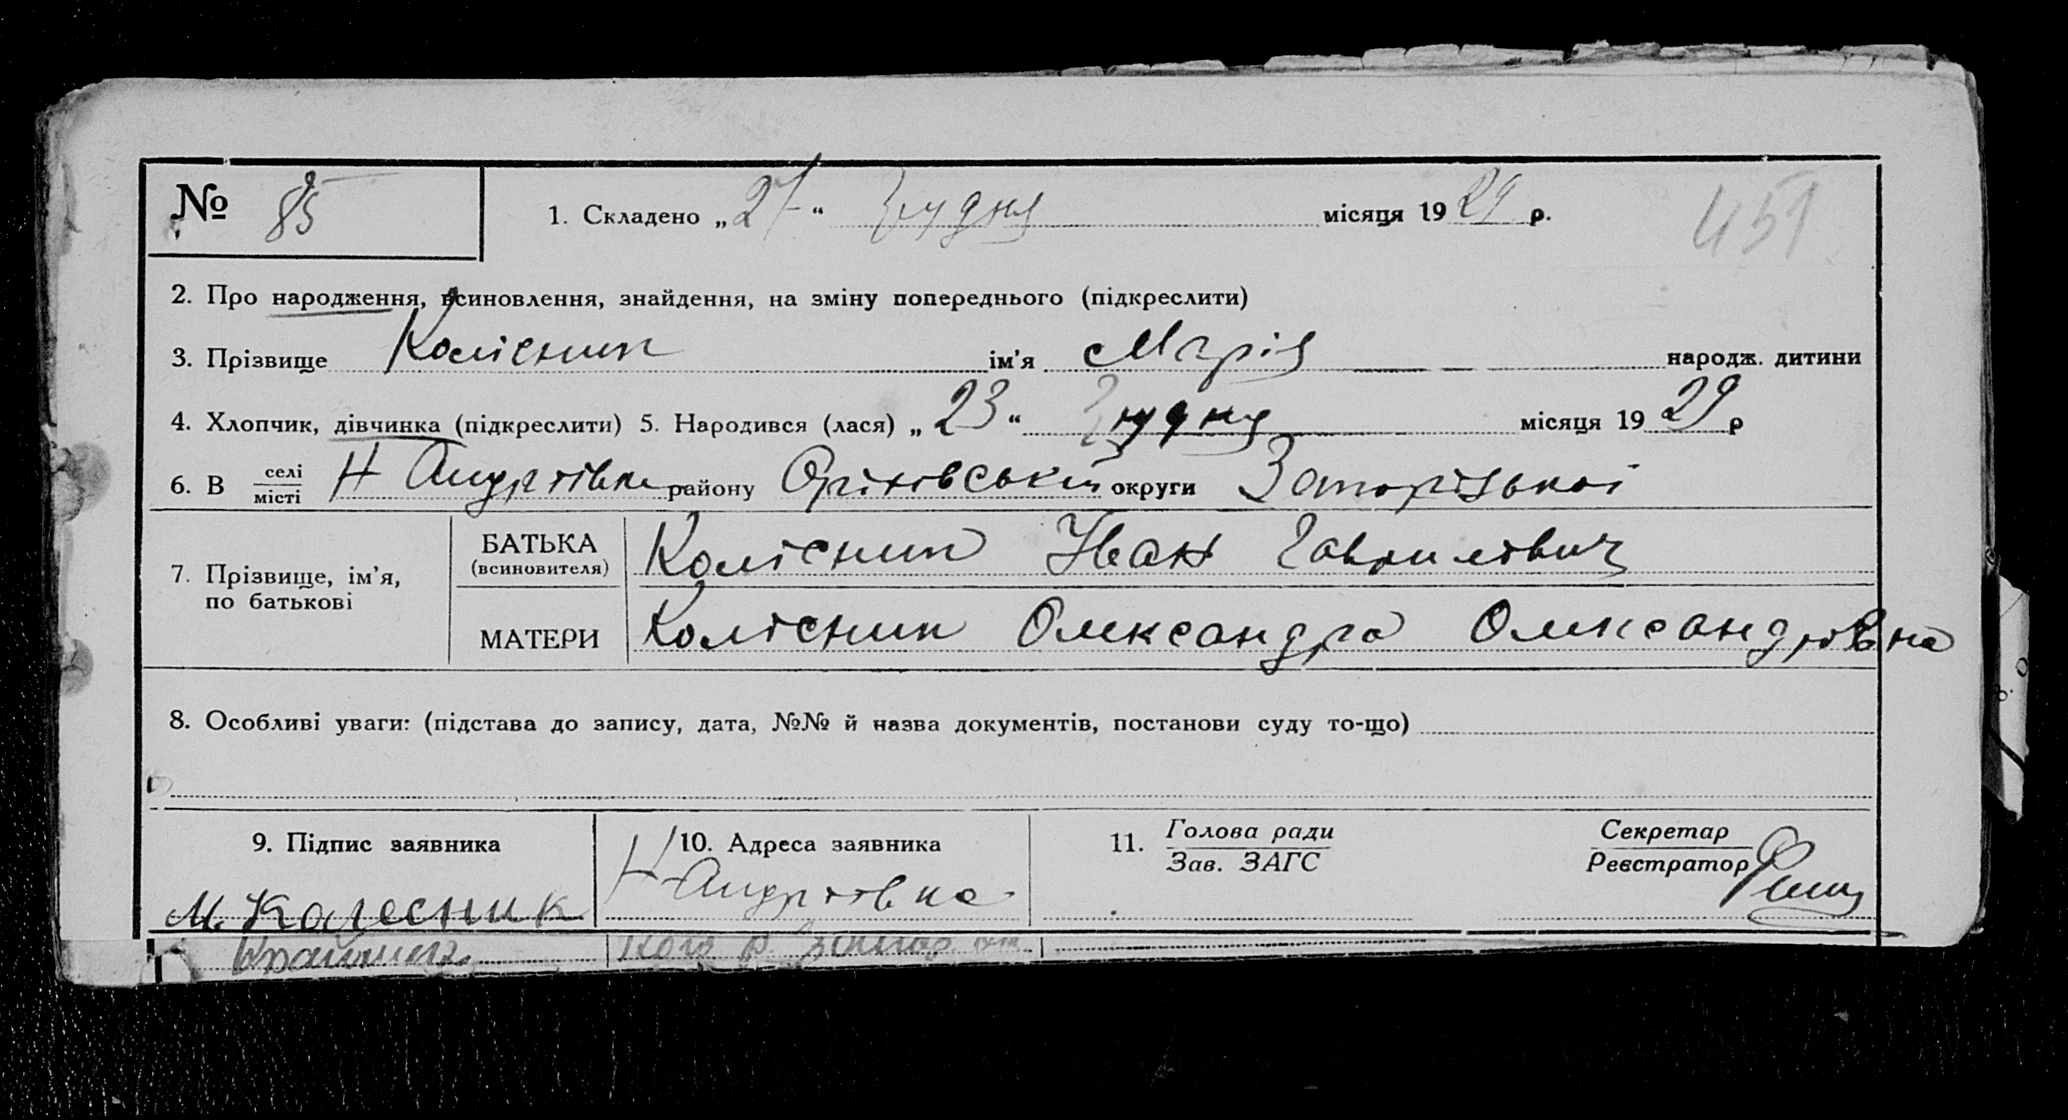 № 85 1. Складено „27“ грудня місяця 1929 р. 451
2. Про народження, всиновлення, знайдення, на зміну попереднього (підкреслити)
3. Прізвище Колісник ім'я Марія народж. дитини
4. Хлопчик, дівчинка (підкреслити) 5. Народився (лася) „23“ грудня місяця 1929 р
6. В селі
місті Н Андріівка району Оріхівський округи Запорізької
7. Прізвище, ім'я, по батькові
БАТЬКА (всиновителя) Колісник Іван Гаврилович
МАТЕРИ Колісник Олександра Олександрівна
8. Особливі уваги: (підстава до запису, дата, №№ й назва документів, постанови суду то-що)
9. Підпис заявника 10. Адреса заявника 11. Голова ради
Зав. ЗАГС Секретар
Реєстратор
М. Колесник Н-Андріівка